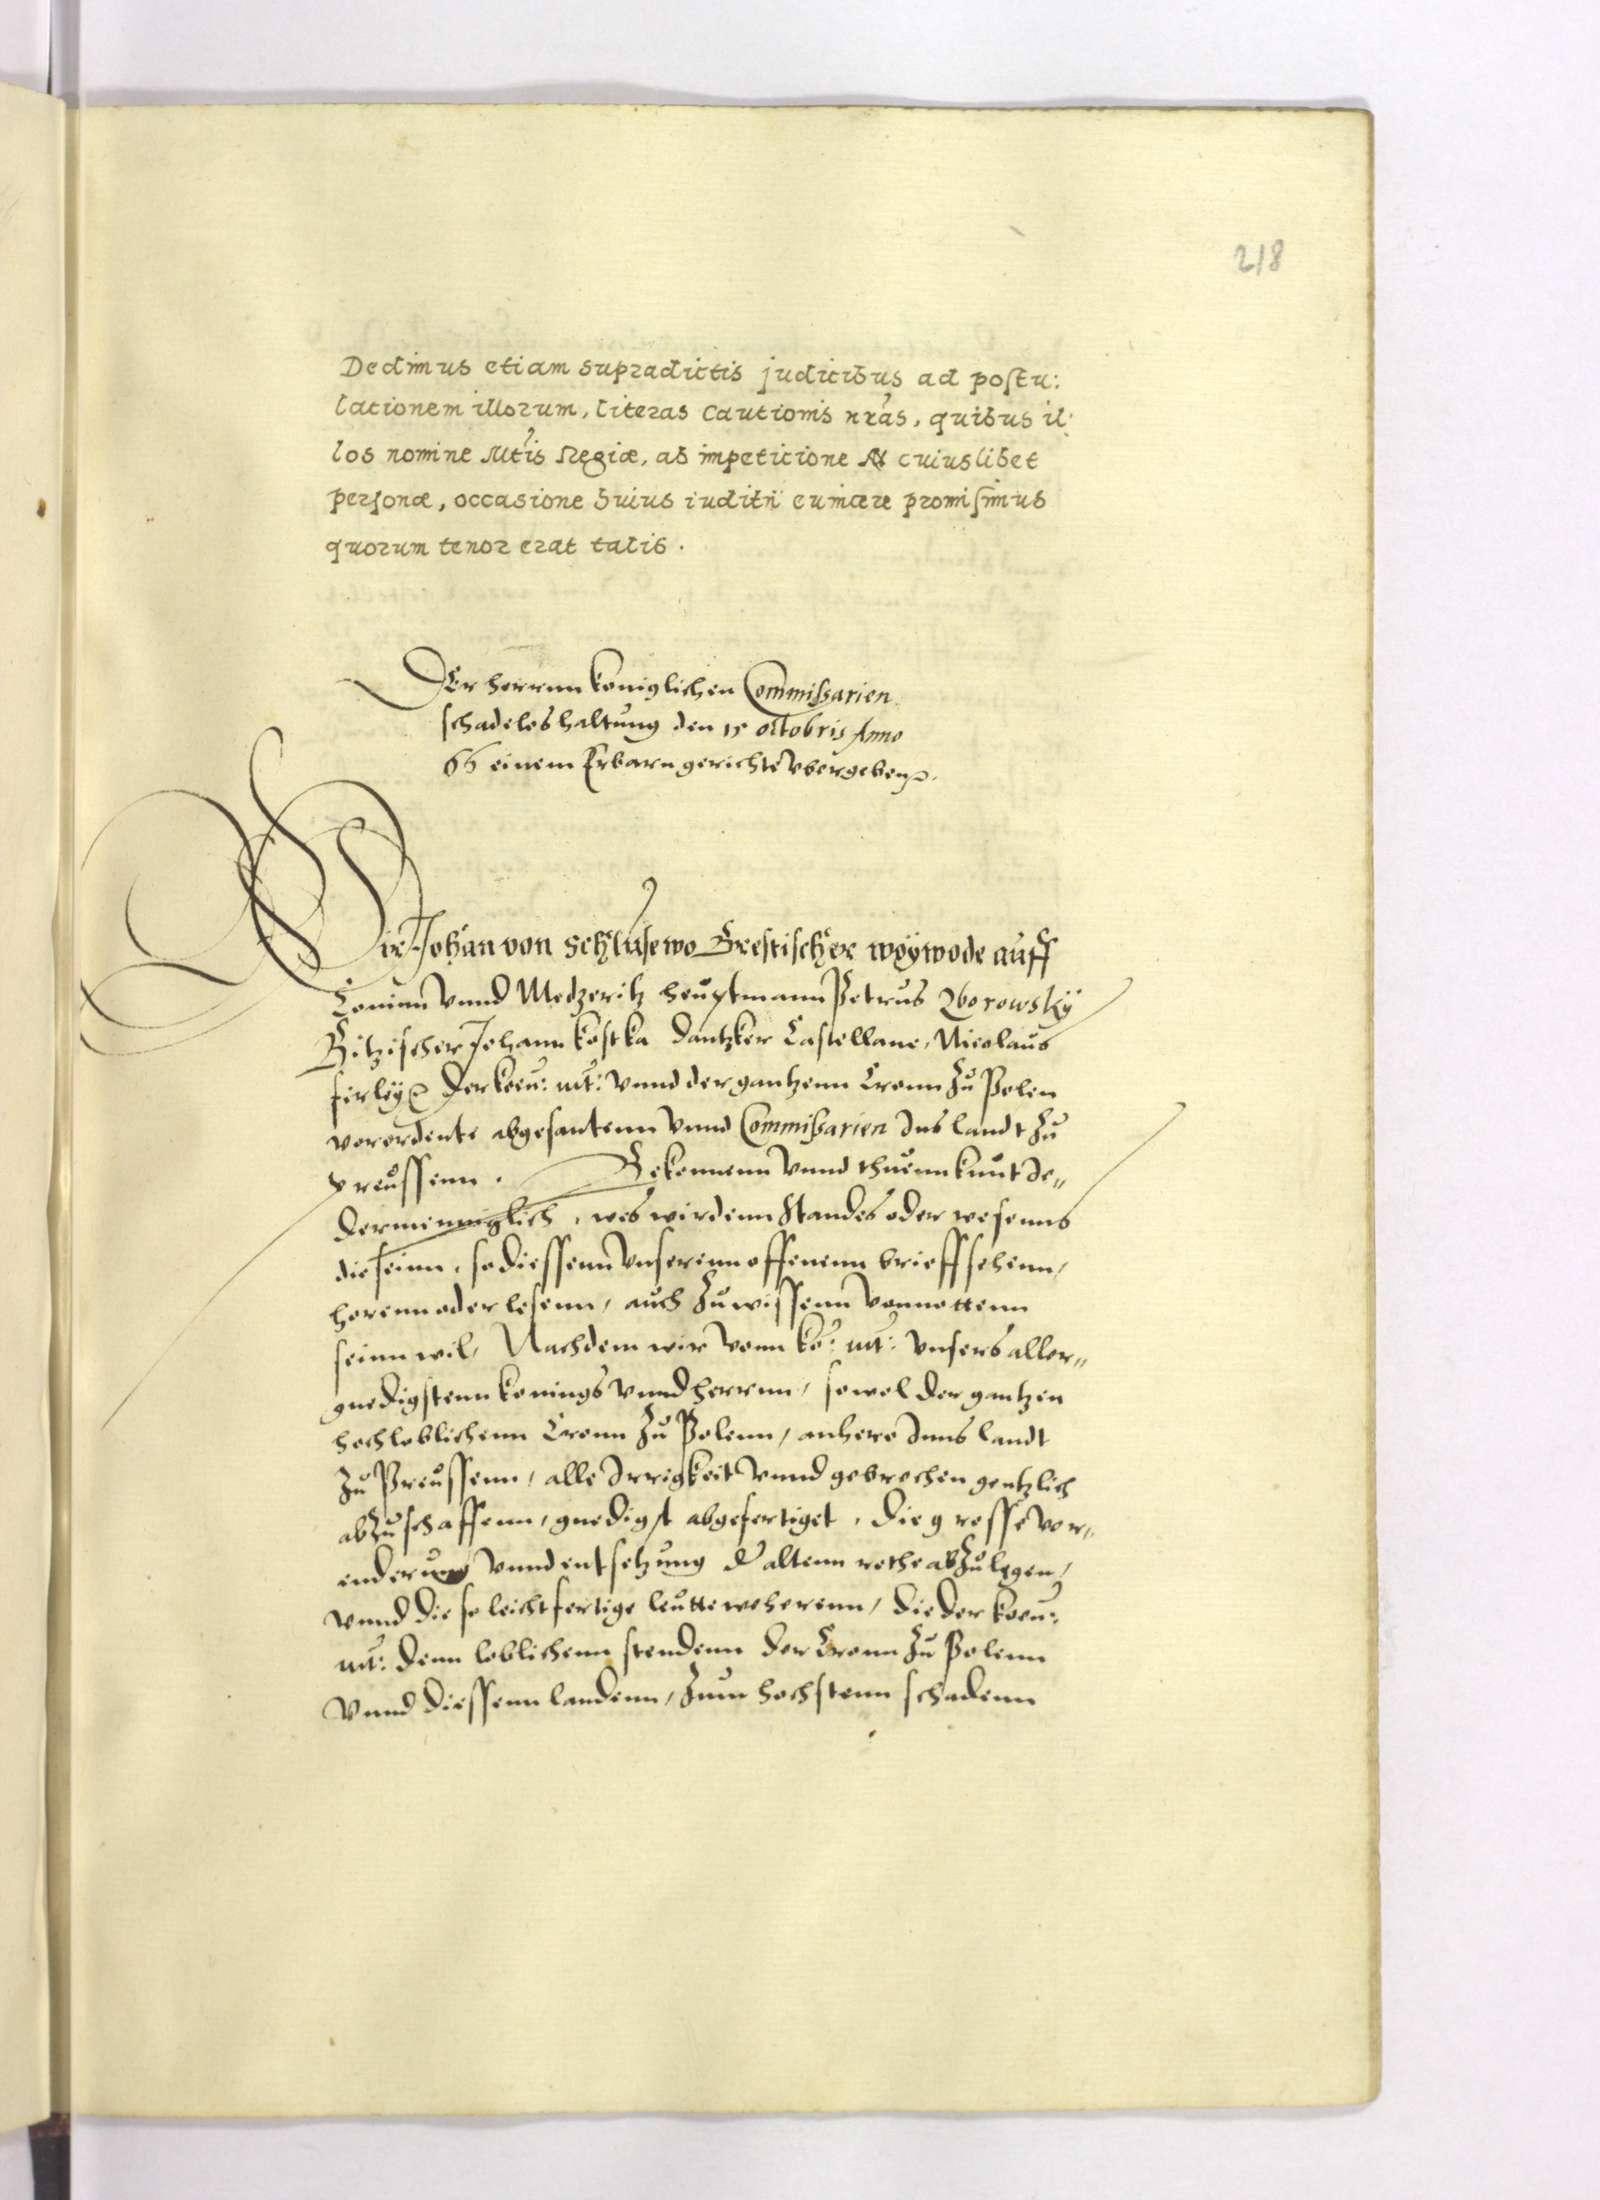 218
Dedimus etiam supradictis judicibus ad postu:
lationem illorum, literas cautionis nr̃as, quibus il:
los nomine Mt̃is Regiæ, ab impeticione cuiuslibet
personæ, occasione huius iuditii euincere promisimus
quorum tenor erat talis.
Der herrnn koniglichen Commissarien
schadeloshaltung den 15 octobris Anno
66 einem Erbarn gerichte vbergeben
Wir Johan von Schlusewo Brestischer woywode auff
Coninn vnnd Medzeritz heuptmann Petrus Zborowsky
Bitzischer Johann kostka dantzker Castellane, Nicolaus
firley der koen: mt: vnnd der gantzenn Cronn zu Polen
verordente abgesantenn vnnd Commissarien Ins landt zu
preussenn. Bekennenn vnnd thuenn kunt Je„
dermenniglich, wes wirdenn standes oder wesenns
die seinn, so diessenn vnserenn offenenn brieff sehenn,
horenn oder lesenn, auch zu wissenn vonnottenn
seinn wil, Nachdem wir vonn ko: mt: vnsers aller„
gnedigstenn konings vnnd herrnn, sowol der gantzen
hochloblichenn Cronn zu Polenn, anhero Inns landt
zu Preussenn, alle Irrigkeit vnnd gebrechen gentzlich
abzuschaffenn, gnedigst abgefertiget, die grosse ver„
enderung vnnd entsetzung d altenn rethe abzulegen,
vnnd die so leichtfertige leutte weherenn, die der koen:
mt: denn loblichenn stendenn der Cronn zu Polenn
vnnd diessenn landenn, zum hochstenn schadenn